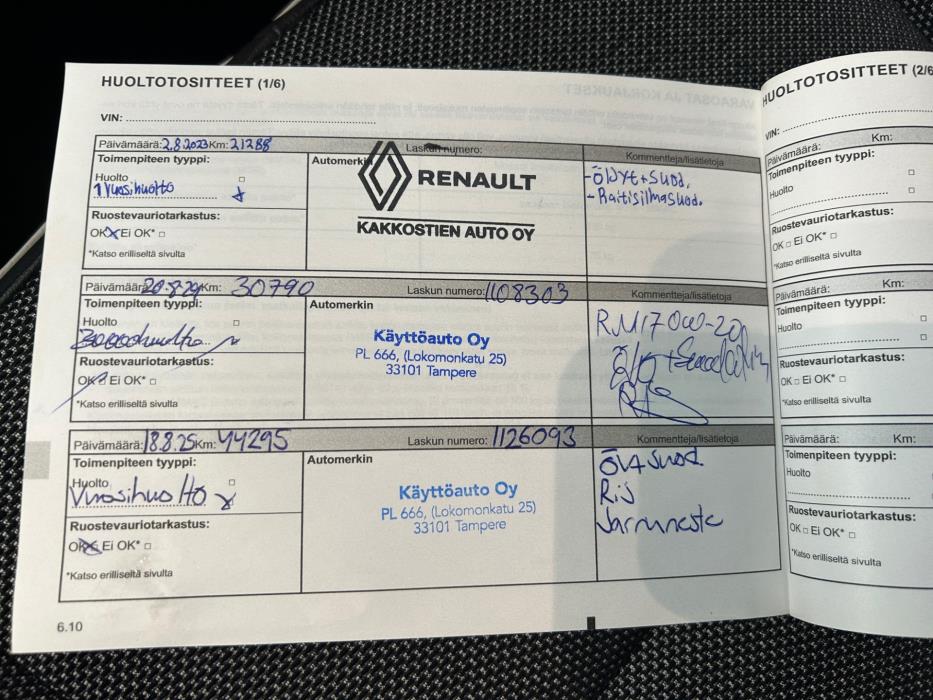 HUOLTOTOSITTEET (1/6)
VIN:
Päivämäärä: 2.8.2023 Km: 21288 Laskun numero:
Toimenpiteen tyyppi:
Huolto
1 Vuosihuolto
Ruostevauriotarkastus:
OK Ei OK*
*Katso erilliseltä sivulta
Automerkin
RENAULT
KAKKOSTIEN AUTO OY
Kommentteja/lisätietoja
-Öljyt+suod.
-Raitisilmasuod.
Päivämäärä: 20.8.24 Km: 30790 Laskun numero: 1108303
Toimenpiteen tyyppi:
Huolto
Ruostevauriotarkastus:
OK Ei OK*
*Katso erilliseltä sivulta
Automerkin
Käyttöauto Oy
PL 666, (Lokomonkatu 25)
33101 Tampere
Kommentteja/lisätietoja
RN17 0W-20
Päivämäärä: 18.8.25 Km: 44295 Laskun numero: 1126093
Toimenpiteen tyyppi:
Huolto
Vuosihuolto
Ruostevauriotarkastus:
OK Ei OK*
*Katso erilliseltä sivulta
Automerkin
Käyttöauto Oy
PL 666, (Lokomonkatu 25)
33101 Tampere
Kommentteja/lisätietoja
Jarruneste
6.10
HUOLTOTOSITTEET (2/6
VIN:
Päivämäärä: Km:
Toimenpiteen tyyppi:
Huolto
Ruostevauriotarkastus:
OK Ei OK*
*Katso erilliseltä sivulta
Päivämäärä: Km:
Toimenpiteen tyyppi:
Huolto
Ruostevauriotarkastus:
OK Ei OK*
*Katso erilliseltä sivulta
Päivämäärä: Km:
Toimenpiteen tyyppi:
Huolto
Ruostevauriotarkastus:
OK Ei OK*
*Katso erilliseltä sivulta